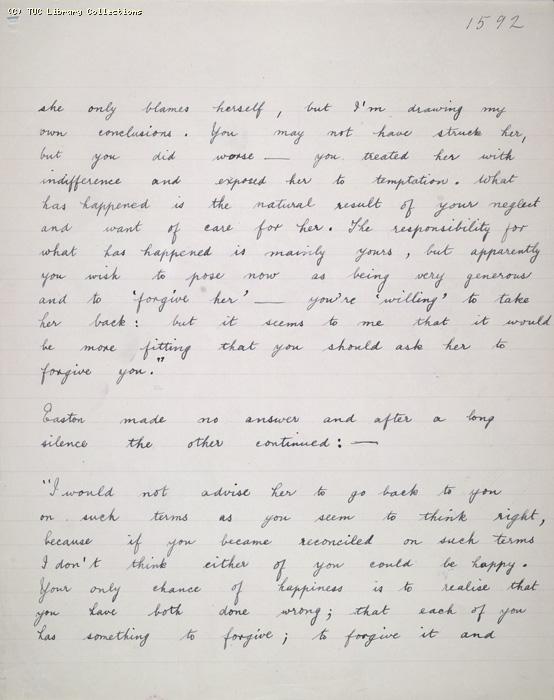 (C) TUC Library Collections
1592
she only blames herself, but I'm drawing my
own conclusions. You may not have struck her,
but you did worse — you treated her with
indifference and exposed her to temptation. What
has happened is the natural result of your neglect
and want of care for her. The responsibility for
what has happened is mainly yours, but apparently
you wish to pose now as being very generous
and to 'forgive her' — you're 'willing' to take
her back: but it seems to me that it would
be more fitting that you should ask her to
forgive you."
Easton made no answer and after a long
silence the other continued: —
"I would not advise her to go back to you
on such terms as you seem to think right,
because if you became reconciled on such terms
I don't think either of you could be happy.
Your only chance of happiness is to realise that
you have both done wrong; that each of you
has something to forgive; to forgive it and